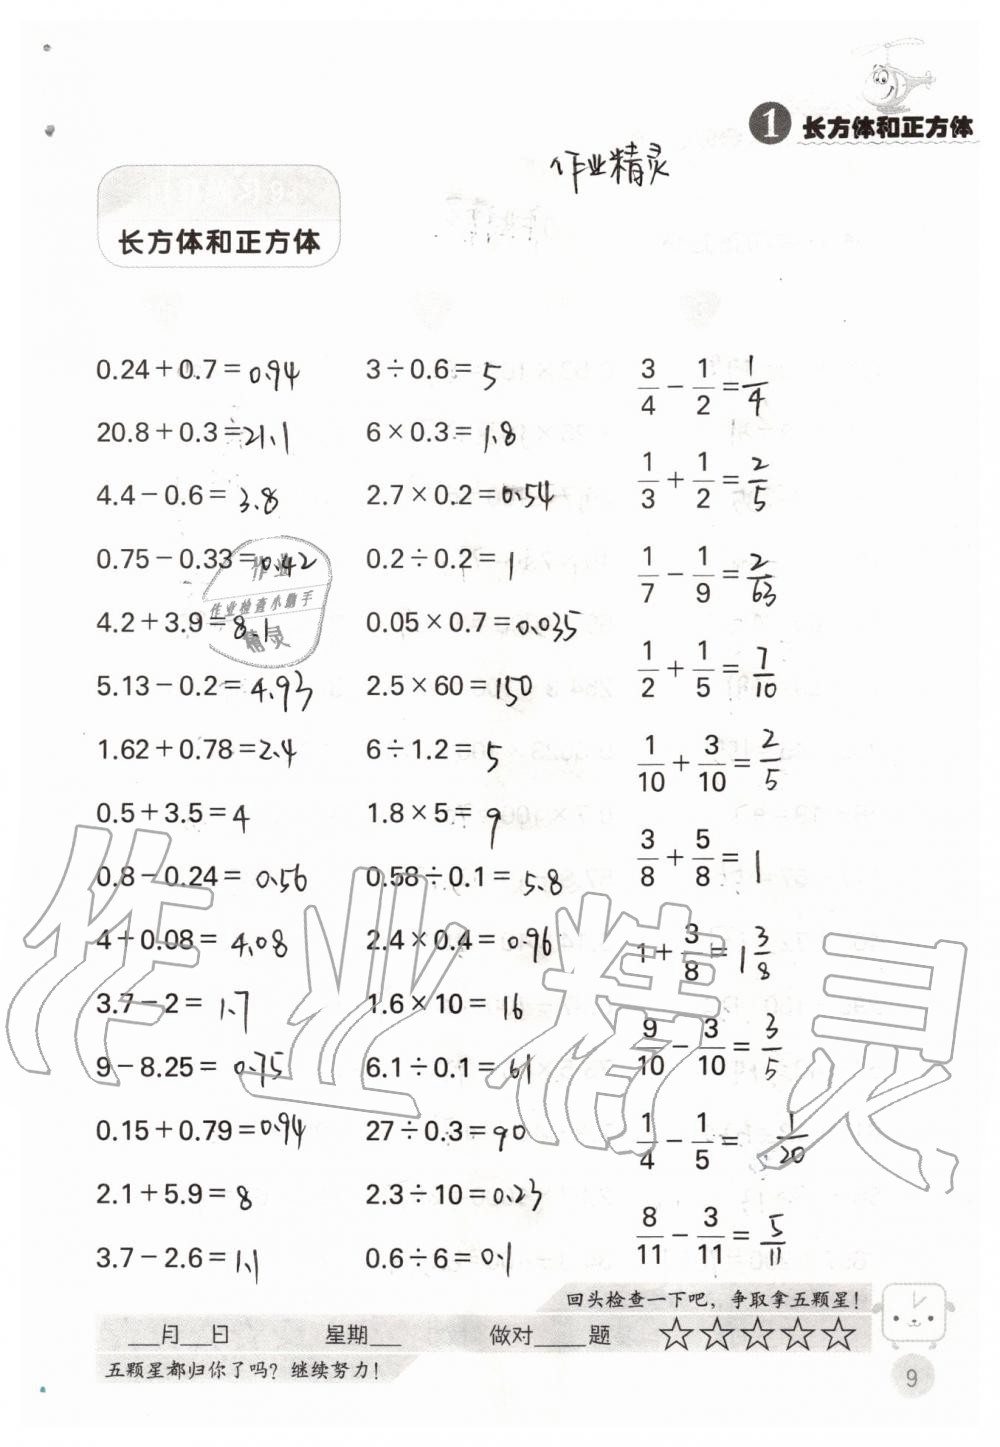 1 长方体和正方体
作业精灵
长方体和正方体
0.24+0.7=0.94 3÷0.6=5 3/4-1/2=1/4
20.8+0.3=21.1 6×0.3=1.8 1/3+1/2=2/5
4.4-0.6=3.8 2.7×0.2=0.54 1/7-1/9=2/63
0.75-0.33=0.42 0.2÷0.2=1 1/2+1/5=7/10
4.2+3.9=8.1 0.05×0.7=0.035 1/10+3/10=2/5
5.13-0.2=4.93 2.5×60=150 3/8+5/8=1
1.62+0.78=2.4 6÷1.2=5 1+3/8=1 3/8
0.5+3.5=4 1.8×5=9 9/10-3/10=3/5
0.8-0.24=0.56 0.58÷0.1=5.8 1/4-1/5=1/20
4+0.08=4.08 2.4×0.4=0.96 8/11-3/11=5/11
3.7-2=1.7 1.6×10=16
9-8.25=0.75 6.1÷0.1=61
0.15+0.79=0.94 27÷0.3=90
2.1+5.9=8 2.3÷10=0.23
3.7-2.6=1.1 0.6÷6=0.1
作业
作业检查小助手
精灵
作业精灵
回头检查一下吧，争取拿五颗星！
__月__日 星期__ 做对____题 ☆☆☆☆☆
五颗星都归你了吗？继续努力！
9